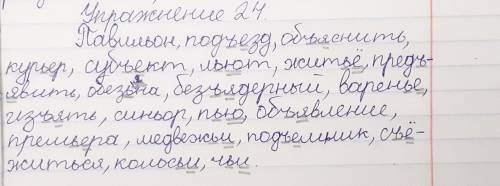 Упражнение 24.
Павильон, подъезд, объяснить,
курьер, субъект, льют, житьё, предъ-
явить, обезьяна, безъядерный, варенье,
изъять, синьор, пью, объявление,
премьера, медвежьи, подъемник, съё-
житься, колосьи, чьи.